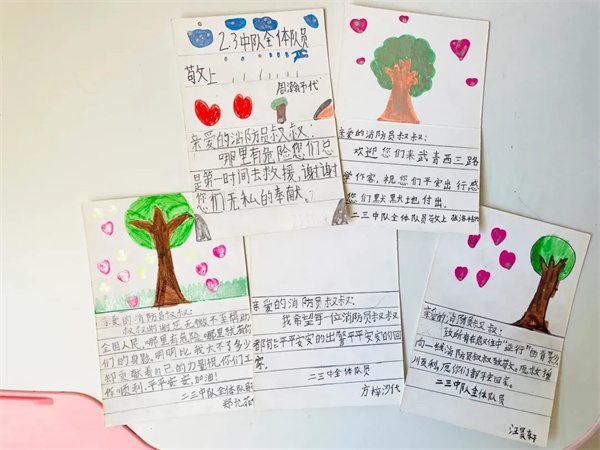 2.3中队全体队员
敬上
周瀚予代
亲爱的消防员叔叔:
哪里有危险您们总
是第一时间去救援,谢谢
您们无私的奉献。
亲爱的消防员叔叔:
欢迎您们来武青西三路
学作客,祝您们平安出行感
您们默默地付出。
二三中队全体队员敬上
亲爱的消防员叔叔:
叔叔谢谢您无微不至帮助
全国人民,哪里有危险,哪里就有你
们的身影。明明比我大不了多少
却贡献着自己的力量祝你们工
作顺利,平平安安,加油!
二三中队全体队员
亲爱的消防员叔叔:
我希望每一位消防员叔叔
都能平平安安的出警平平安安的回
家。
二三中全体队员
方梓汐代
亲爱的消防员叔叔:
致所有在意义中"逆行"的
向一线消防员叔叔致敬。愿救援
顺利,愿你们都平安回家。
二三中队全体队员
汪昊轩